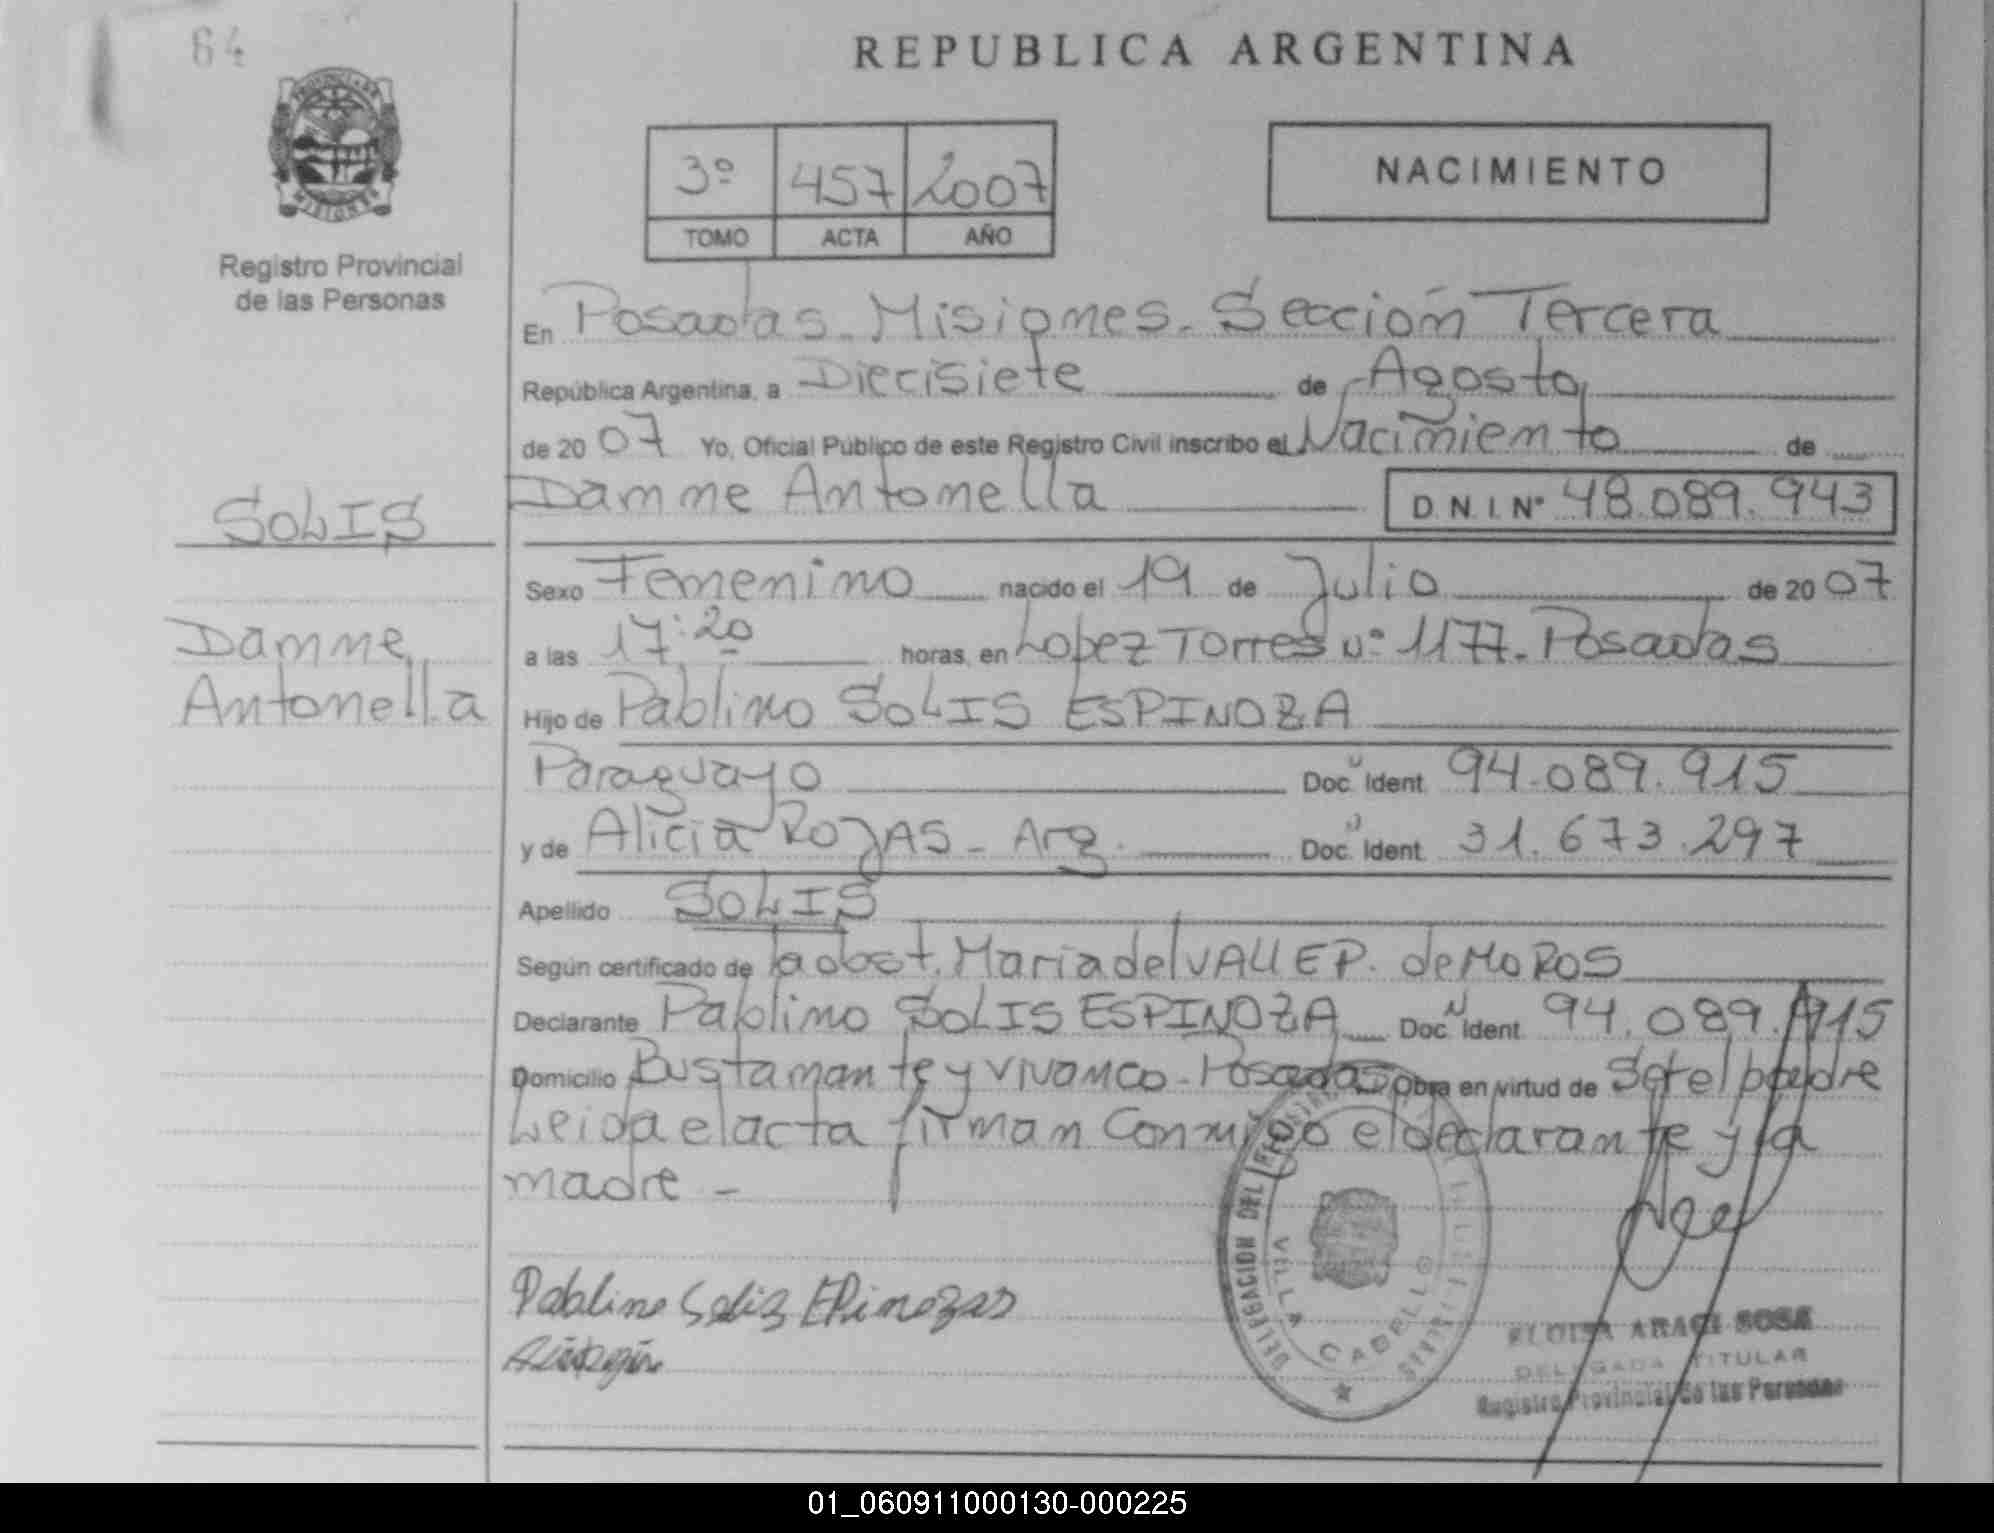 64
REPUBLICA ARGENTINA
PROVINCIA DE MISIONES
Registro Provincial
de las Personas
3º 457 2007
TOMO ACTA AÑO
NACIMIENTO
En Posadas - Misiones - Sección Tercera
República Argentina, a Diecisiete de Agosto
de 2007 Yo, Oficial Público de este Registro Civil inscribo el Nacimiento de
Damne Antonella D.N.I. Nº 48.089.943
SOLIS
Sexo Femenino nacido el 19 de Julio de 2007
Damne
Antonella
a las 17:20 horas, en Lopez Torres Nº 1177 - Posadas
Hijo de Pablino SOLIS ESPINOZA
Paraguayo Doc. Ident. 94.089.915
y de Alicia ROJAS - Arg. Doc. Ident. 31.673.297
Apellido SOLIS
Según certificado de la obst. Maria del VALLE P. de MOROS
Declarante Pablino SOLIS ESPINOZA Doc. Ident. 94.089.915
Domicilio Bustamante y Vivanco - Posadas Obra en virtud de Ser el padre
Leida el acta firman conmigo el declarante y la
madre -
Pablino Solis
DELEGACION DEL
VILLA CABELLO
ELOISA ARACI SOSA
DELEGADA TITULAR
Registro Provincial de las Personas
01_060911000130-000225